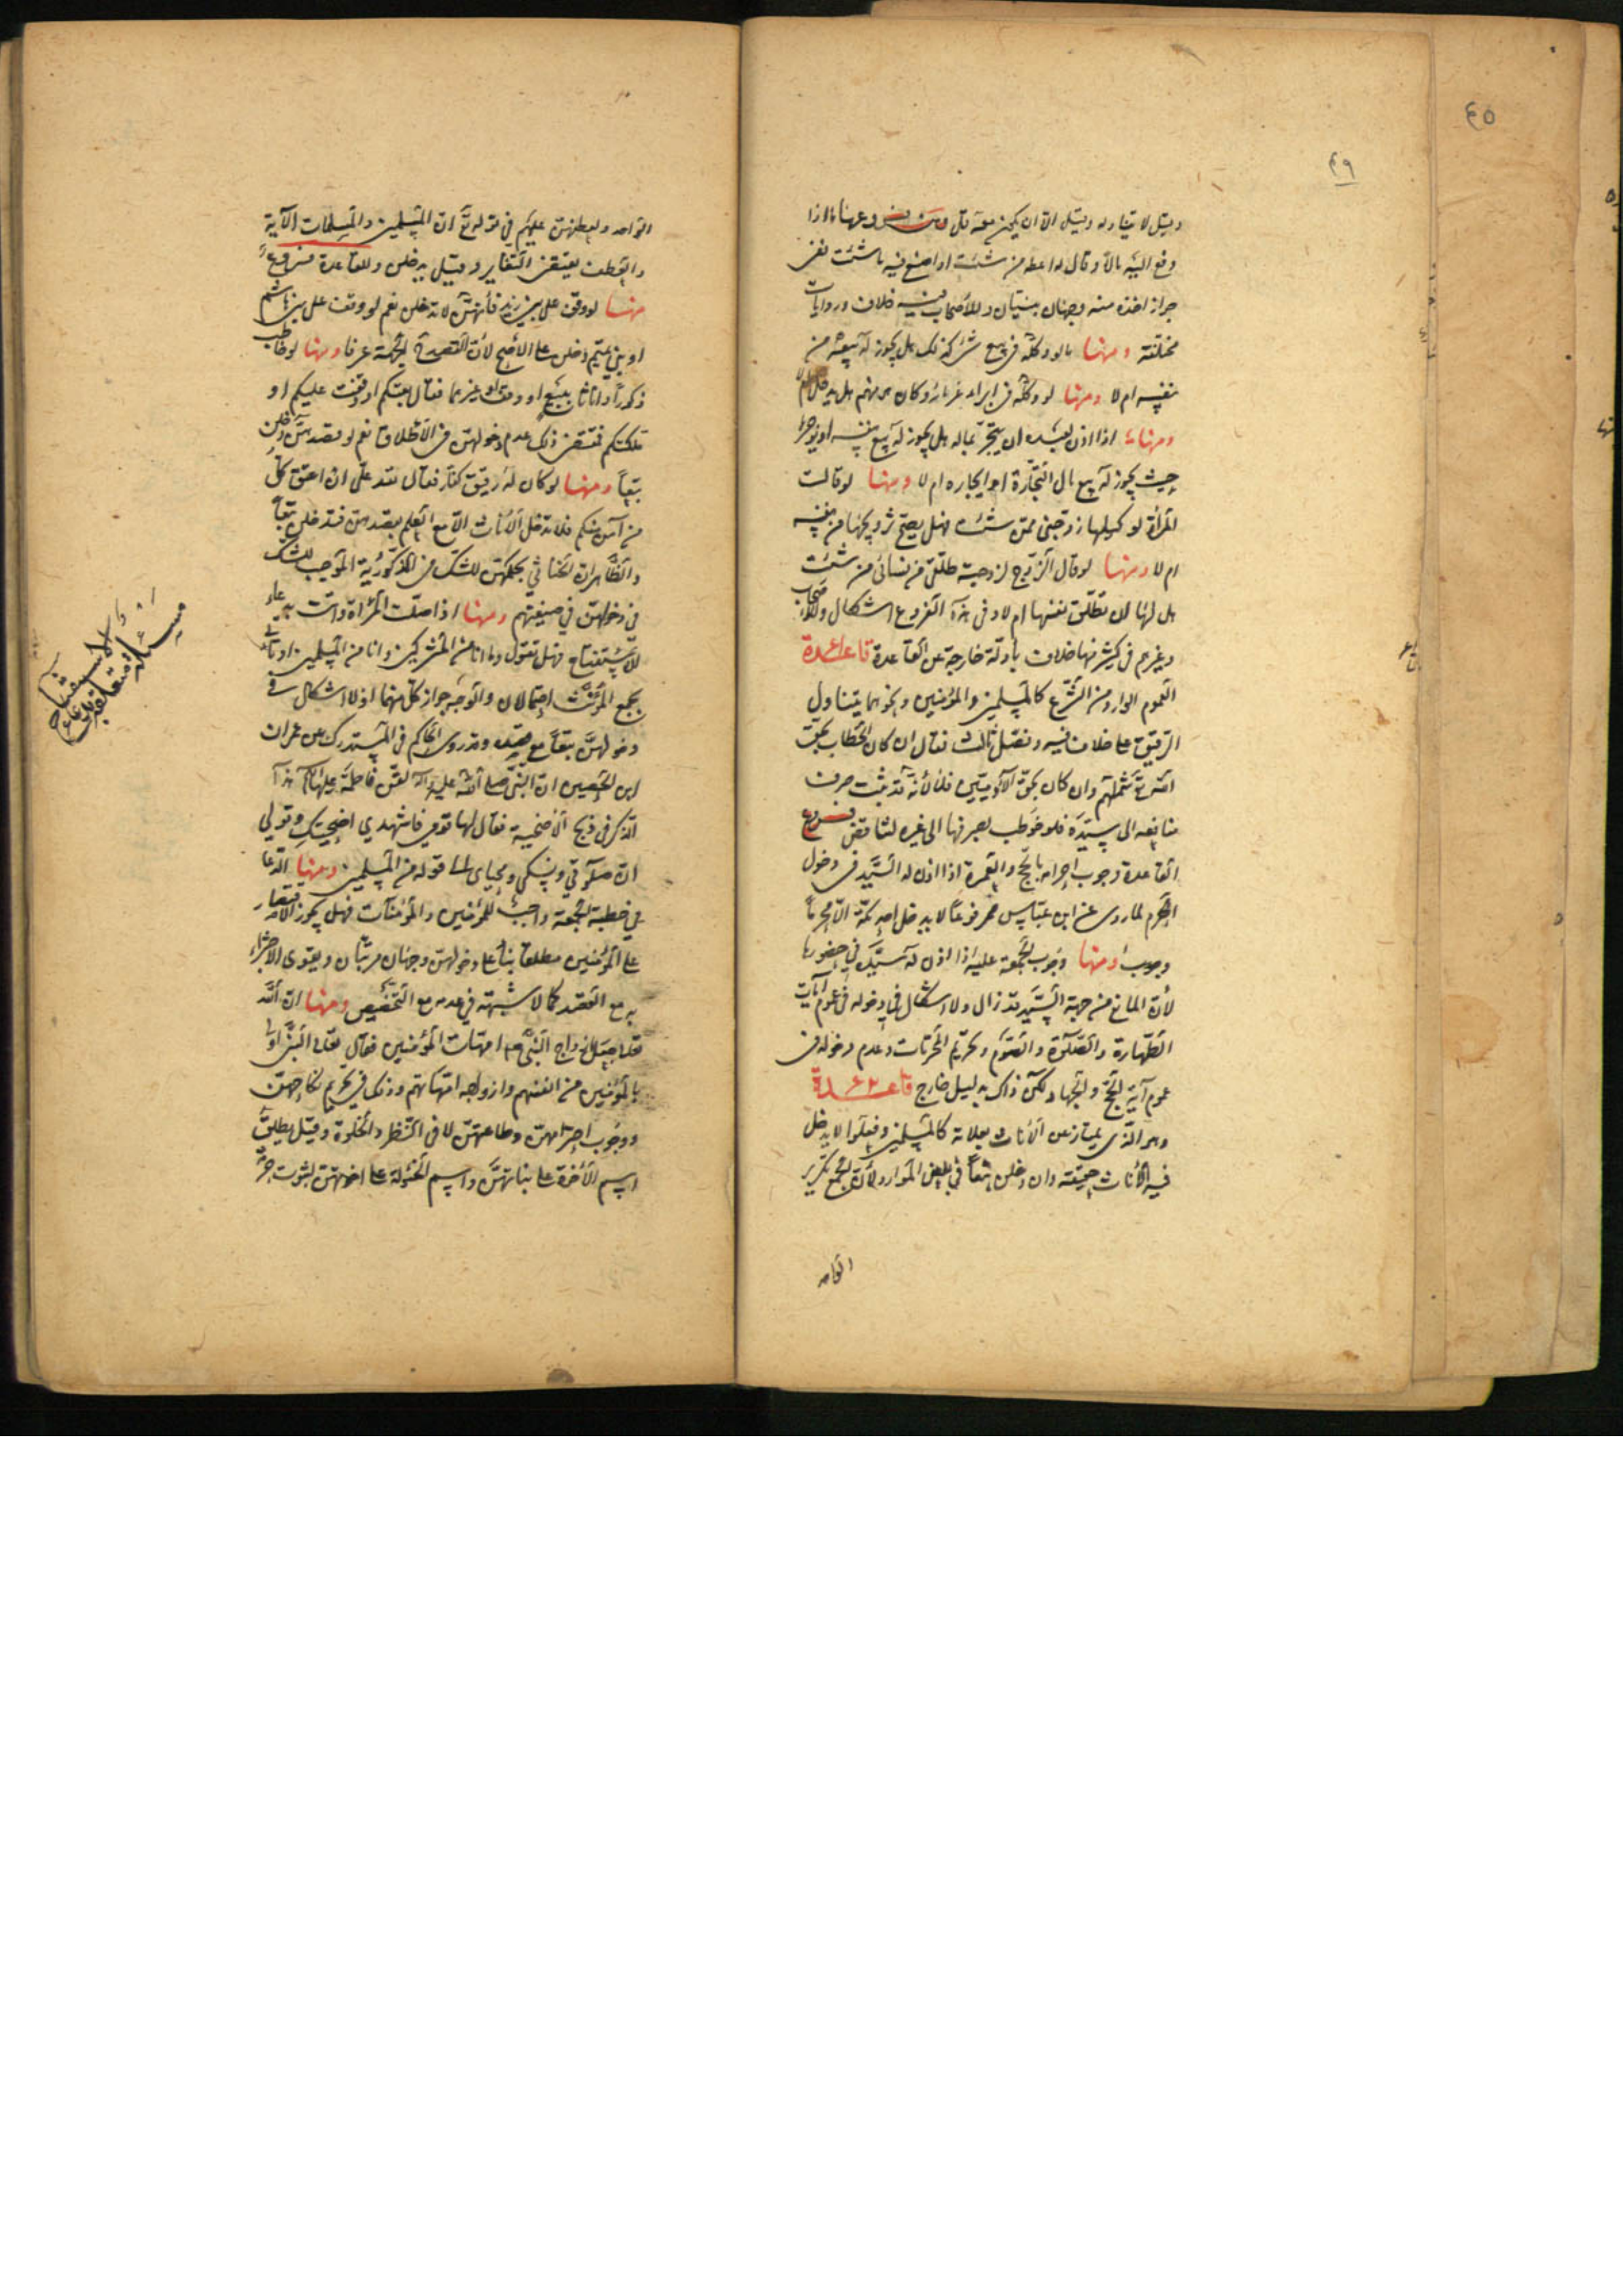 ٤٥
٤٩
وقيل لا يتناوله وقيل الا ان يكون معه قل ومن فروعها ما اذا
دفع اليه مالا وقال له اعطه من شئت او اصنع فيه ما شئت ففي
جواز اخذه منه وجهان مبنيان وللأصحاب فيه خلاف وروايات
مختلفة ومنها ما لو وكله في بيع شركة ذلك هل يجوز له بيعه من
نفسه ام لا ومنها لو وكله في ابراء غرمائه وكان هو منهم هل يدخل ام لا
ومنها اذا اذن لعبده ان يتجر بماله هل يجوز له بيع نفسه او يؤجرها
حيث يجوز له بيع مال التجارة او ايجاره ام لا ومنها لو قالت
المرأة لوكيلها زوجني ممن شئت فهل يصح تزويجها من نفسه
ام لا ومنها لو قال الزوج لزوجته طلقي من نسائي من شئت
هل لها ان تطلق نفسها ام لا وفي هذه الفروع اشكال وللأصحاب
وغيرهم في كثير منها خلاف بأدلة خارجة عن القاعدة قاعدة
العموم الوارد من الشرع كالمسلمين والمؤمنين ونحوهما يتناول
الرقيق على خلاف فيه وفصل ثالث فقال ان كان الخطاب بحق
الله تع شملهم وان كان بحق الآدميين فلا لأنه قد ثبت صرف
منافعه الى سيده فلو خوطب بصرفها الى غيره لتناقض فروع
القاعدة وجوب احرامه بالحج والعمرة اذا اذن له السيد في دخول
الحرم لما روي عن ابن عباس مرفوعا لا يدخل احد مكة الا محرما
وجوبا ومنها وجوب الجمعة عليه اذا اذن له سيده في حضورها
لأن المانع من جهة السيد قد زال ولا اشكال في دخوله في عموم آيات
الطهارة والصلوة والصوم وتحريم المحرمات وعدم دخوله في
عموم آية الحج والجهاد لكن ذلك بدليل خارج قاعدة
وهو الذي يمتاز عن الأناث بعلامة كالمسلمين وفعلوا لا يدخل
فيه الأناث حقيقة وان دخلن تبعا في بعض الموارد لأن الجمع تكرير
الواحد
الواحد ولعطفهن عليهم في قوله تع ان المسلمين والمسلمات الآية
والعطف يقتضي التغاير وقيل يدخلن وللقاعدة فروع
منها لو وقف على بني زيد فانهن لا تدخلن نعم لو وقف على بني هاشم
او بني تميم دخلن على الأصح لأن القصد الجهة عرفا ومنها لو خاطب
ذكورا واناثا ببيع او وقف او غيرهما فقال بعتكم او وقفت عليكم او
ملكتكم فمقتضى ذلك عدم دخولهن في الاطلاق نعم لو قصدهن دخلن
تبعا ومنها لو كان له رقيق كفار فقال لله علي ان اعتق كل
من آمن منكم فلا تدخل الأناث الا مع العلم بقصدهن فتدخلن تبعا
والظاهر ان الخناثي بحكمهن للشك في الذكورية الموجب للشك
في دخولهن في صيغتهم ومنها اذا صلت المرأة واتت بدعاء
الاستفتاح فهل تقول وما انا من المشركين وانا من المسلمين او تأتي
بجمع المؤنث احتمالان والوجه جواز كل منهما اذ لا اشكال في
دخولهن تبعا مع قصده وقد روى الحاكم في المستدرك عن عمران
ابن الحصين ان النبي صلى الله عليه وآله لقن فاطمة عليها السلام هذا
الذكر في ذبح الأضحية فقال لها قومي فاشهدي اضحيتك وقولي
ان صلوتي ونسكي ومحياي الى قوله من المسلمين ومنها الدعا
في خطبة الجمعة واجب للمؤمنين والمؤمنات فهل يجوز الاقتصار
على المؤمنين مطلقا بناء على دخولهن وجهان مرتبان ويقوى الاجزاء
به مع القصد كما لا شبهة في عدمه مع التخصيص ومنها ان الله
تعالى جعل ازواج النبي ص امهات المؤمنين فقال تعالى النبي اولى
بالمؤمنين من انفسهم وازواجه امهاتهم وذلك في تحريم نكاحهن
ووجوب احترامهن وطاعتهن لا في النظر والخلوة وقيل يطلق
اسم الأخوة على بناتهن واسم الخؤولة على اخوتهن لثبوت حرمة
مسئلة متعلقة بدعاء
الاستفتاح